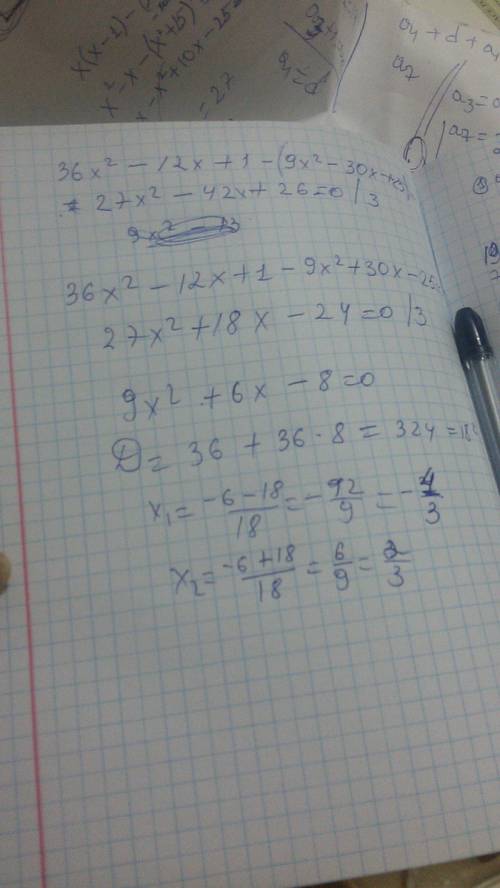 x(x-1)-(
x² - x - (x²+5)
- x²+10x-25
= 27
a₁ = d
a₁ + d + a₁
a₇
a₃ = a
a₇ =
36x² - 12x + 1 - (9x² - 30x + 25)
27x² - 42x + 26 = 0 | 3
9x² - 13
36x² - 12x + 1 - 9x² + 30x - 25 =
27x² + 18x - 24 = 0 | 3
9x² + 6x - 8 = 0
D = 36 + 36 · 8 = 324 = 18²
x₁ = \frac{-6-18}{18} = -\frac{12}{9} = -\frac{4}{3}
x₂ = \frac{-6+18}{18} = \frac{6}{9} = \frac{2}{3}